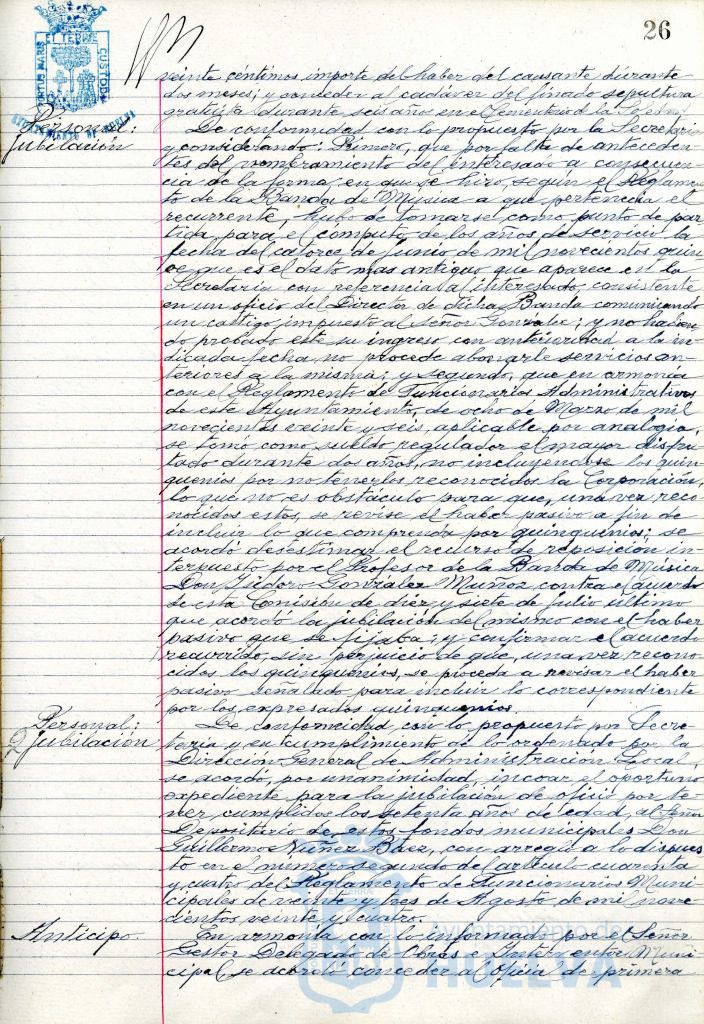 26
PORTUS MARIS ET TERRE CUSTODIA
AYUNTAMIENTO DE HUELVA
veinte céntimos, importe del haber del causante durante
dos meses; y conceder al cadáver del finado sepultura
gratuita durante seis años en el Cementerio de la Soledad.
Personal:
Jubilación
De conformidad con lo propuesto por la Secretaría
y considerando: Primero, que por falta de anteceden-
tes del nombramiento del interesado a consecuen-
cia de la forma, en que se hizo, según el Reglamen-
to de la Banda de Música a que pertenecía el
recurrente, hubo de tomarse como punto de par-
tida, para el cómputo de los años de servicio la
fecha del catorce de Junio de mil novecientos quin-
ce que es el dato mas antiguo que aparece en la
Secretaría con referencia al interesado, consistente
en un oficio del Director de dicha Banda comunicando
un castigo impuesto al Señor González; y no habien-
do probado este su ingreso con anterioridad a la in-
dicada fecha no procede abonarle servicios an-
teriores a la misma; y segundo, que en armonía
con el Reglamento de Funcionarios Administrativos
de este Ayuntamiento, de ocho de Marzo de mil
novecientos veinte y seis, aplicable por analogía,
se tomó como sueldo regulador el mayor disfru-
tado durante dos años, no incluyendose los quin-
quenios por no tenerlos reconocidos la Corporación,
lo que no es obstáculo para que, una vez reco-
nocidos estos, se revise el haber pasivo a fin de
incluir lo que comprenda por quinquenios; se
acordó desestimar el recurso de reposición in-
terpuesto por el Profesor de la Banda de Música
Don Isidoro González Muñoz, contra el acuerdo
de esta Comisión de diez y siete de Julio último
que acordó la jubilación del mismo con el haber
pasivo que se fijaba; y confirmar el acuerdo
recurrido, sin perjuicio de que, una vez recono-
cidos los quinquenios, se proceda a revisar el haber
pasivo señalado, para incluir lo correspondiente
por los expresados quinquenios.
Personal:
Jubilación
De conformidad con lo propuesto por Secre-
taría y en cumplimiento de lo ordenado por la
Dirección General de Administración Local,
se acordó, por unanimidad, incoar el oportuno
expediente para la jubilación de oficio por te-
ner cumplidos los setenta años de edad, al Señor
Depositario de estos fondos municipales Don
Guillermo Núñez Báez, con arreglo a lo dispues-
to en el número segundo del artículo cuarenta
y cuatro del Reglamento de Funcionarios Muni-
cipales de veinte y tres de Agosto de mil nove-
cientos veinte y cuatro.
Anticipo.
En armonía con lo informado por el Señor
Gestor Delegado de Obras e Interventor Muni-
cipal se acordó conceder al Oficial de primera
Ayuntamiento de
HUELVA